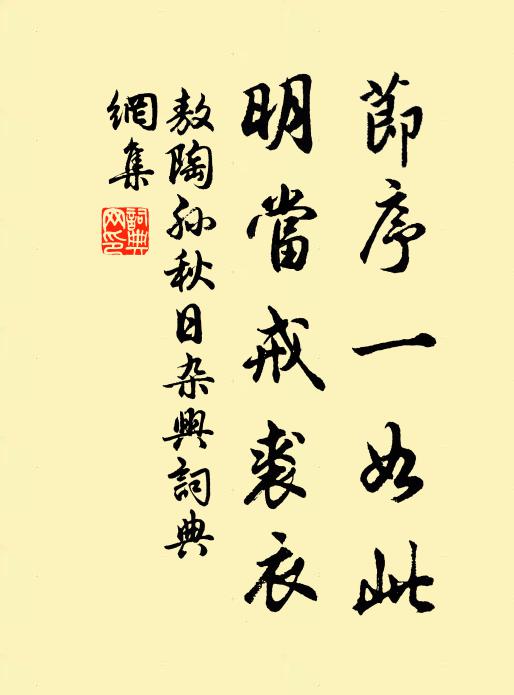 節序一如此
明當戒裘衣
敖陶孙秋日杂興詞典
網集
詞典網印